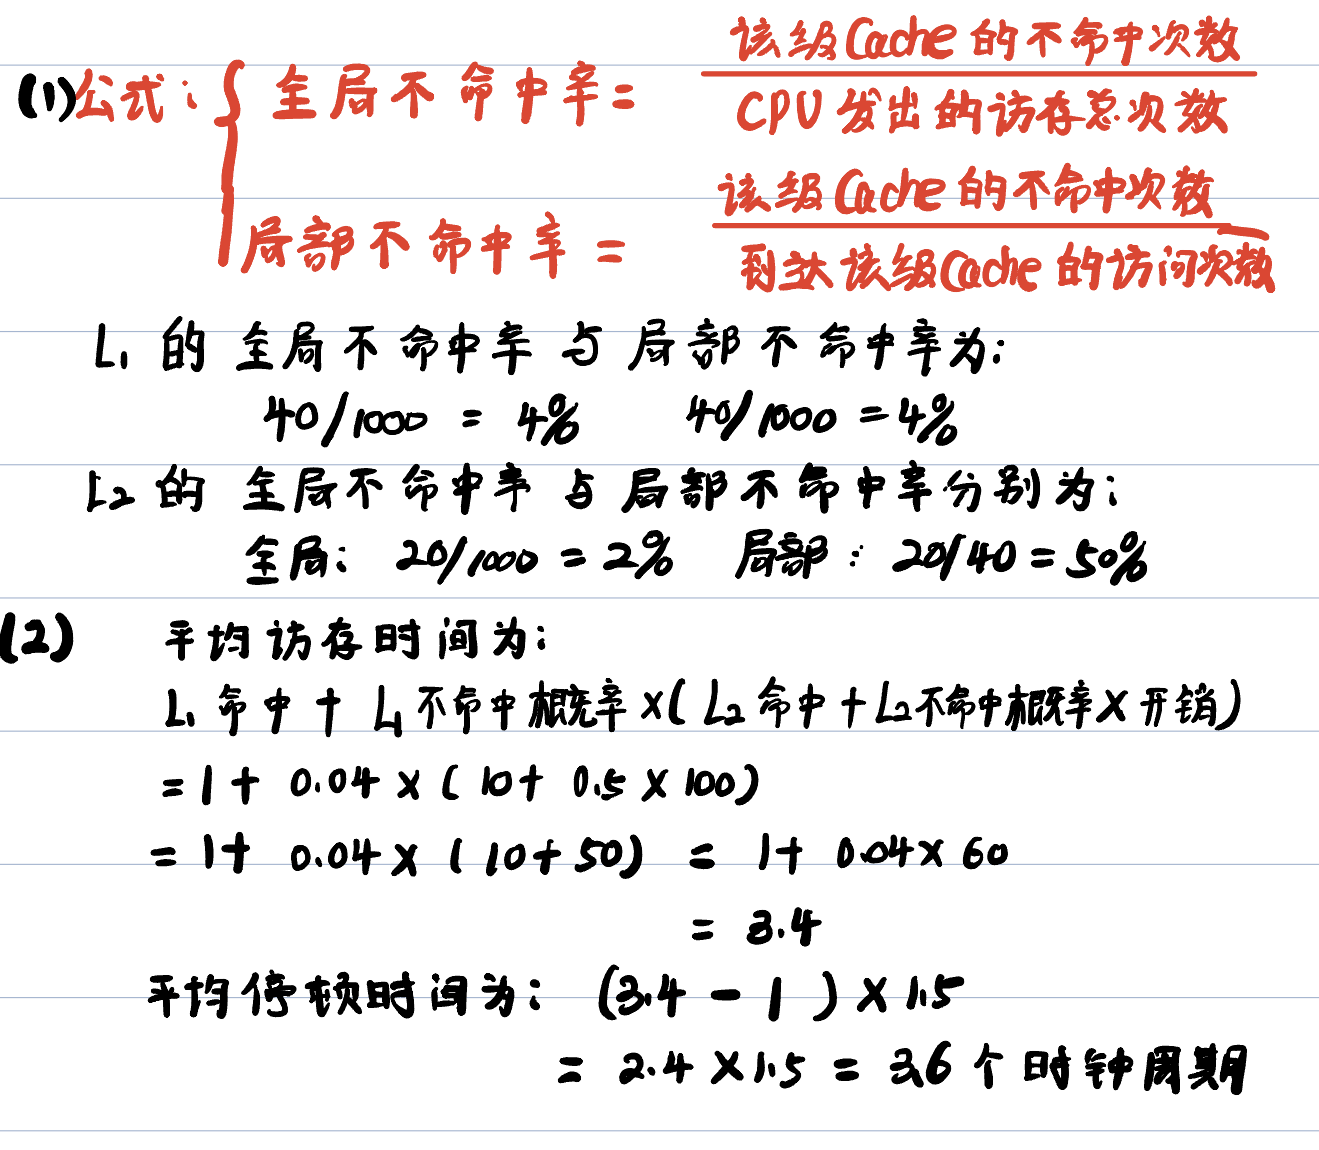 该级Cache的不命中次数
(1)公式: 全局不命中率=
CPU发出的访存总次数
该级Cache的不命中次数
局部不命中率=
到达该级Cache的访问次数
L1的全局不命中率与局部不命中率为:
40/1000 = 4% 40/1000 = 4%
L2的全局不命中率与局部不命中率分别为:
全局: 20/1000 = 2% 局部: 20/40 = 50%
(2) 平均访存时间为:
L1命中 + L1不命中概率×(L2命中+L2不命中概率×开销)
= 1 + 0.04 × (10 + 0.5 × 100)
= 1 + 0.04 × (10 + 50) = 1 + 0.04 × 60
= 3.4
平均停顿时间为: (3.4 - 1) × 1.5
= 2.4 × 1.5 = 3.6个时钟周期